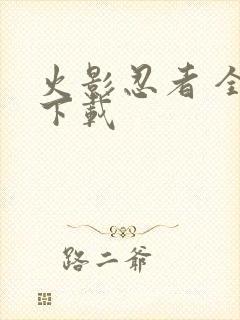 火影忍者 全
下载
路二爷